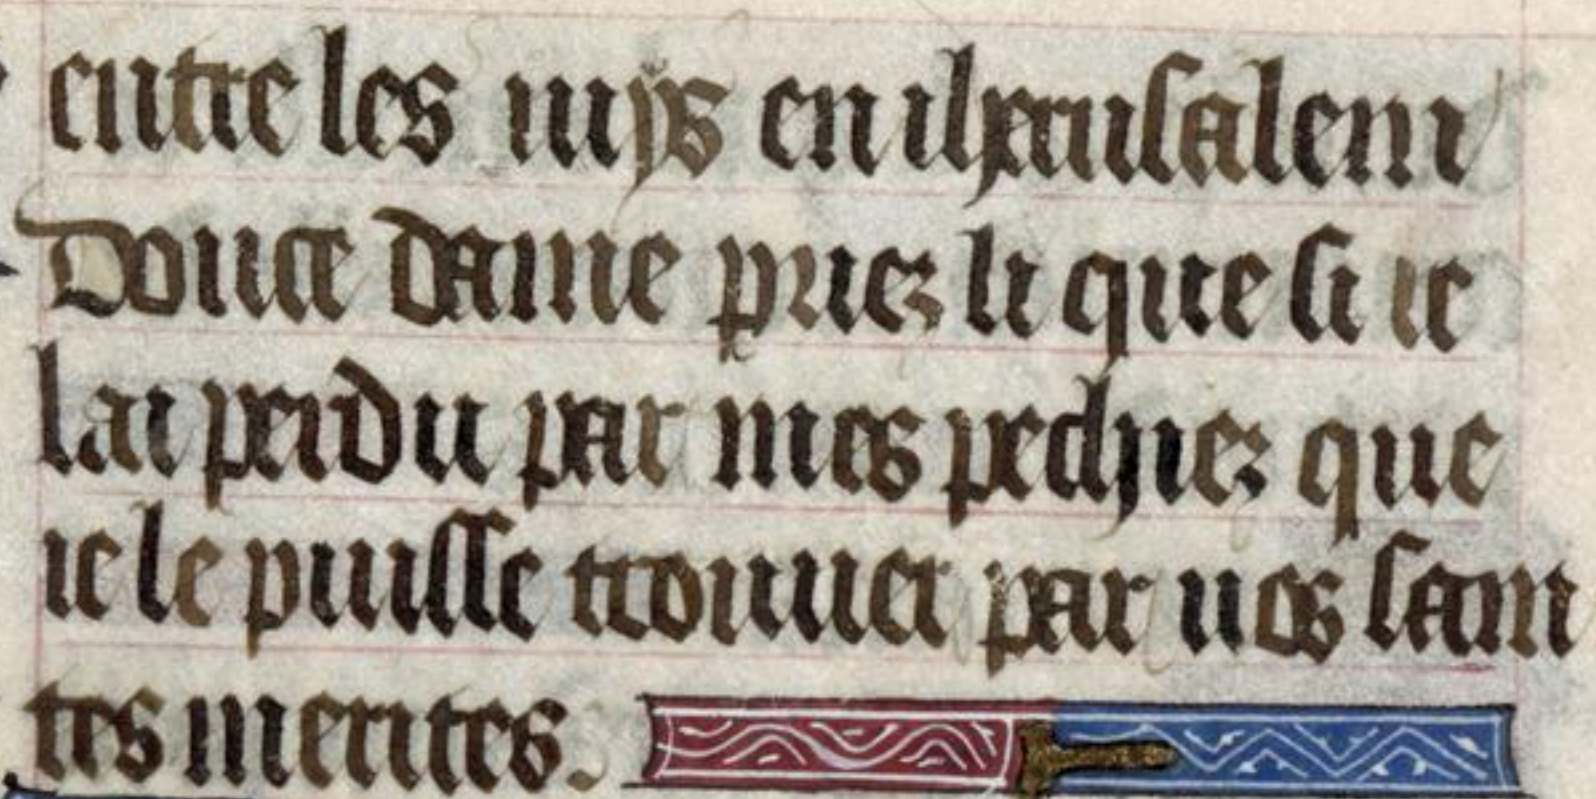 entre les iuys en iherusalem
Douce dame priez li que si ie
lai perdu par mes pechiez que
ie le puisse trouuer par uos sain
tes merites.